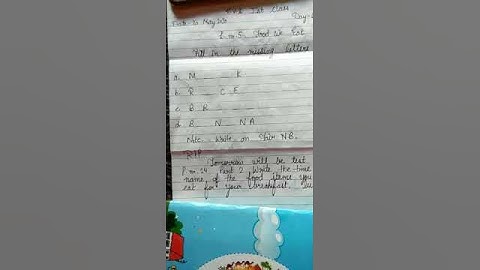 EVS 1st Class
20 May
L no. 5 Food We Eat
Fill in the missing letters
a. M __ __ K
b. R __ C E
c. B R
d. B __ N __ N A
Note - Write on Your N.B.
Tomorrow will be test
P. no. 24 Part 2 Write the
name of the food items you
eat for your breakfast.